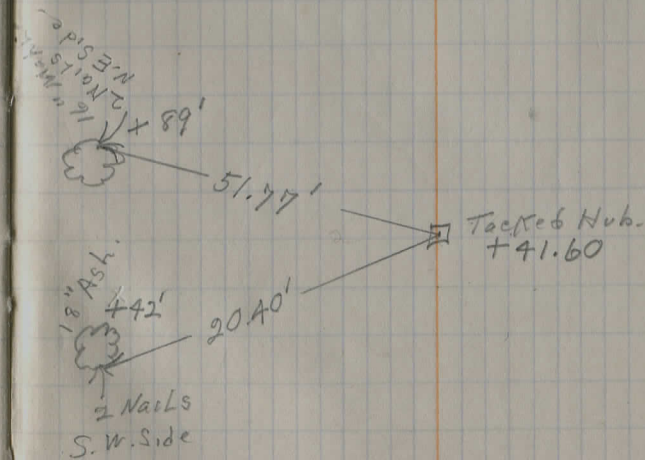 N.E. Side
2 Nails
16"
+ 89'
51.77'
Tacked Hub.
+41.60
18" Ash.
+42'
20.40'
2 Nails
S.W. Side